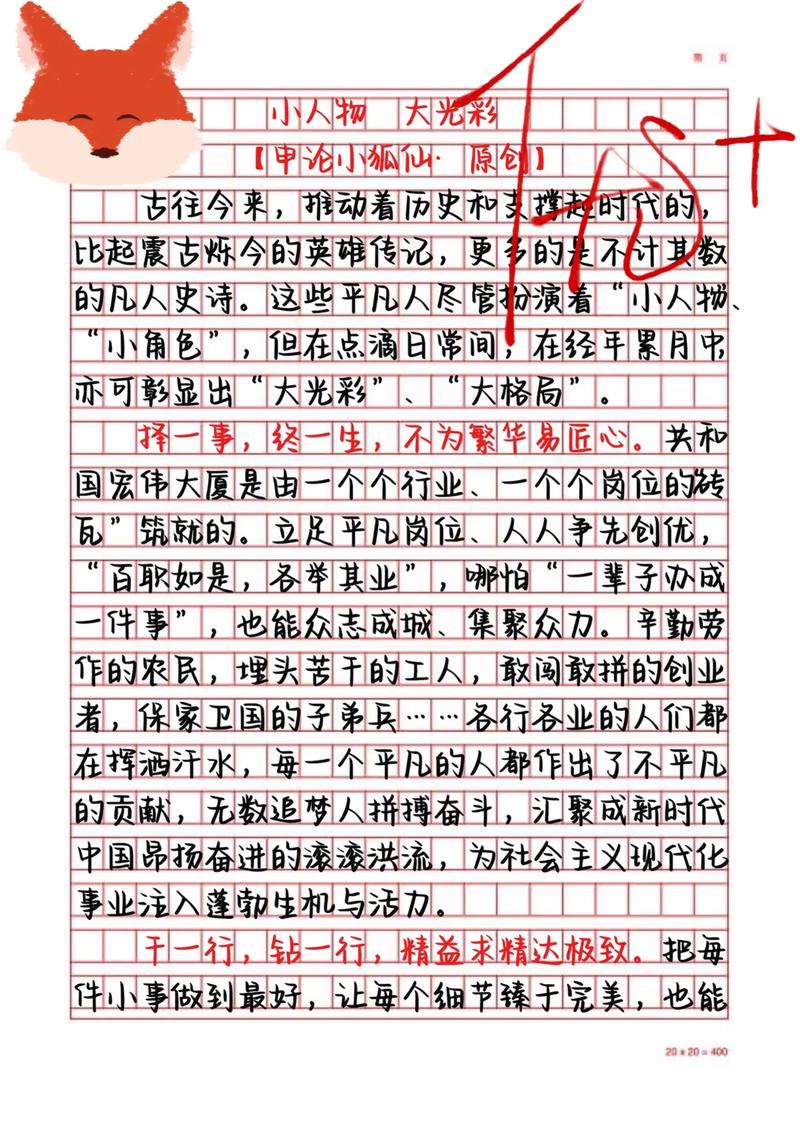 第 页
小人物 大光彩
【申论小狐仙·原创】
古往今来，推动着历史和支撑起时代的，
比起震古烁今的英雄传记，更多的是不计其数
的凡人史诗。这些平凡人尽管扮演着“小人物、
“小角色”，但在点滴日常间，在经年累月中，
亦可彰显出“大光彩”、“大格局”。
择一事，终一生，不为繁华易匠心。共和
国宏伟大厦是由一个个行业、一个个岗位的“砖
瓦”筑就的。立足平凡岗位、人人争先创优，
“百职如是，各举其业”，哪怕“一辈子办成
一件事”，也能众志成城、集聚众力。辛勤劳
作的农民，埋头苦干的工人，敢闯敢拼的创业
者，保家卫国的子弟兵……各行各业的人们都
在挥洒汗水，每一个平凡的人都作出了不平凡
的贡献，无数追梦人拼搏奋斗，汇聚成新时代
中国昂扬奋进的滚滚洪流，为社会主义现代化
事业注入蓬勃生机与活力。
干一行，钻一行，精益求精达极致。把每
件小事做到最好，让每个细节臻于完美，也能
20 x 20 = 400